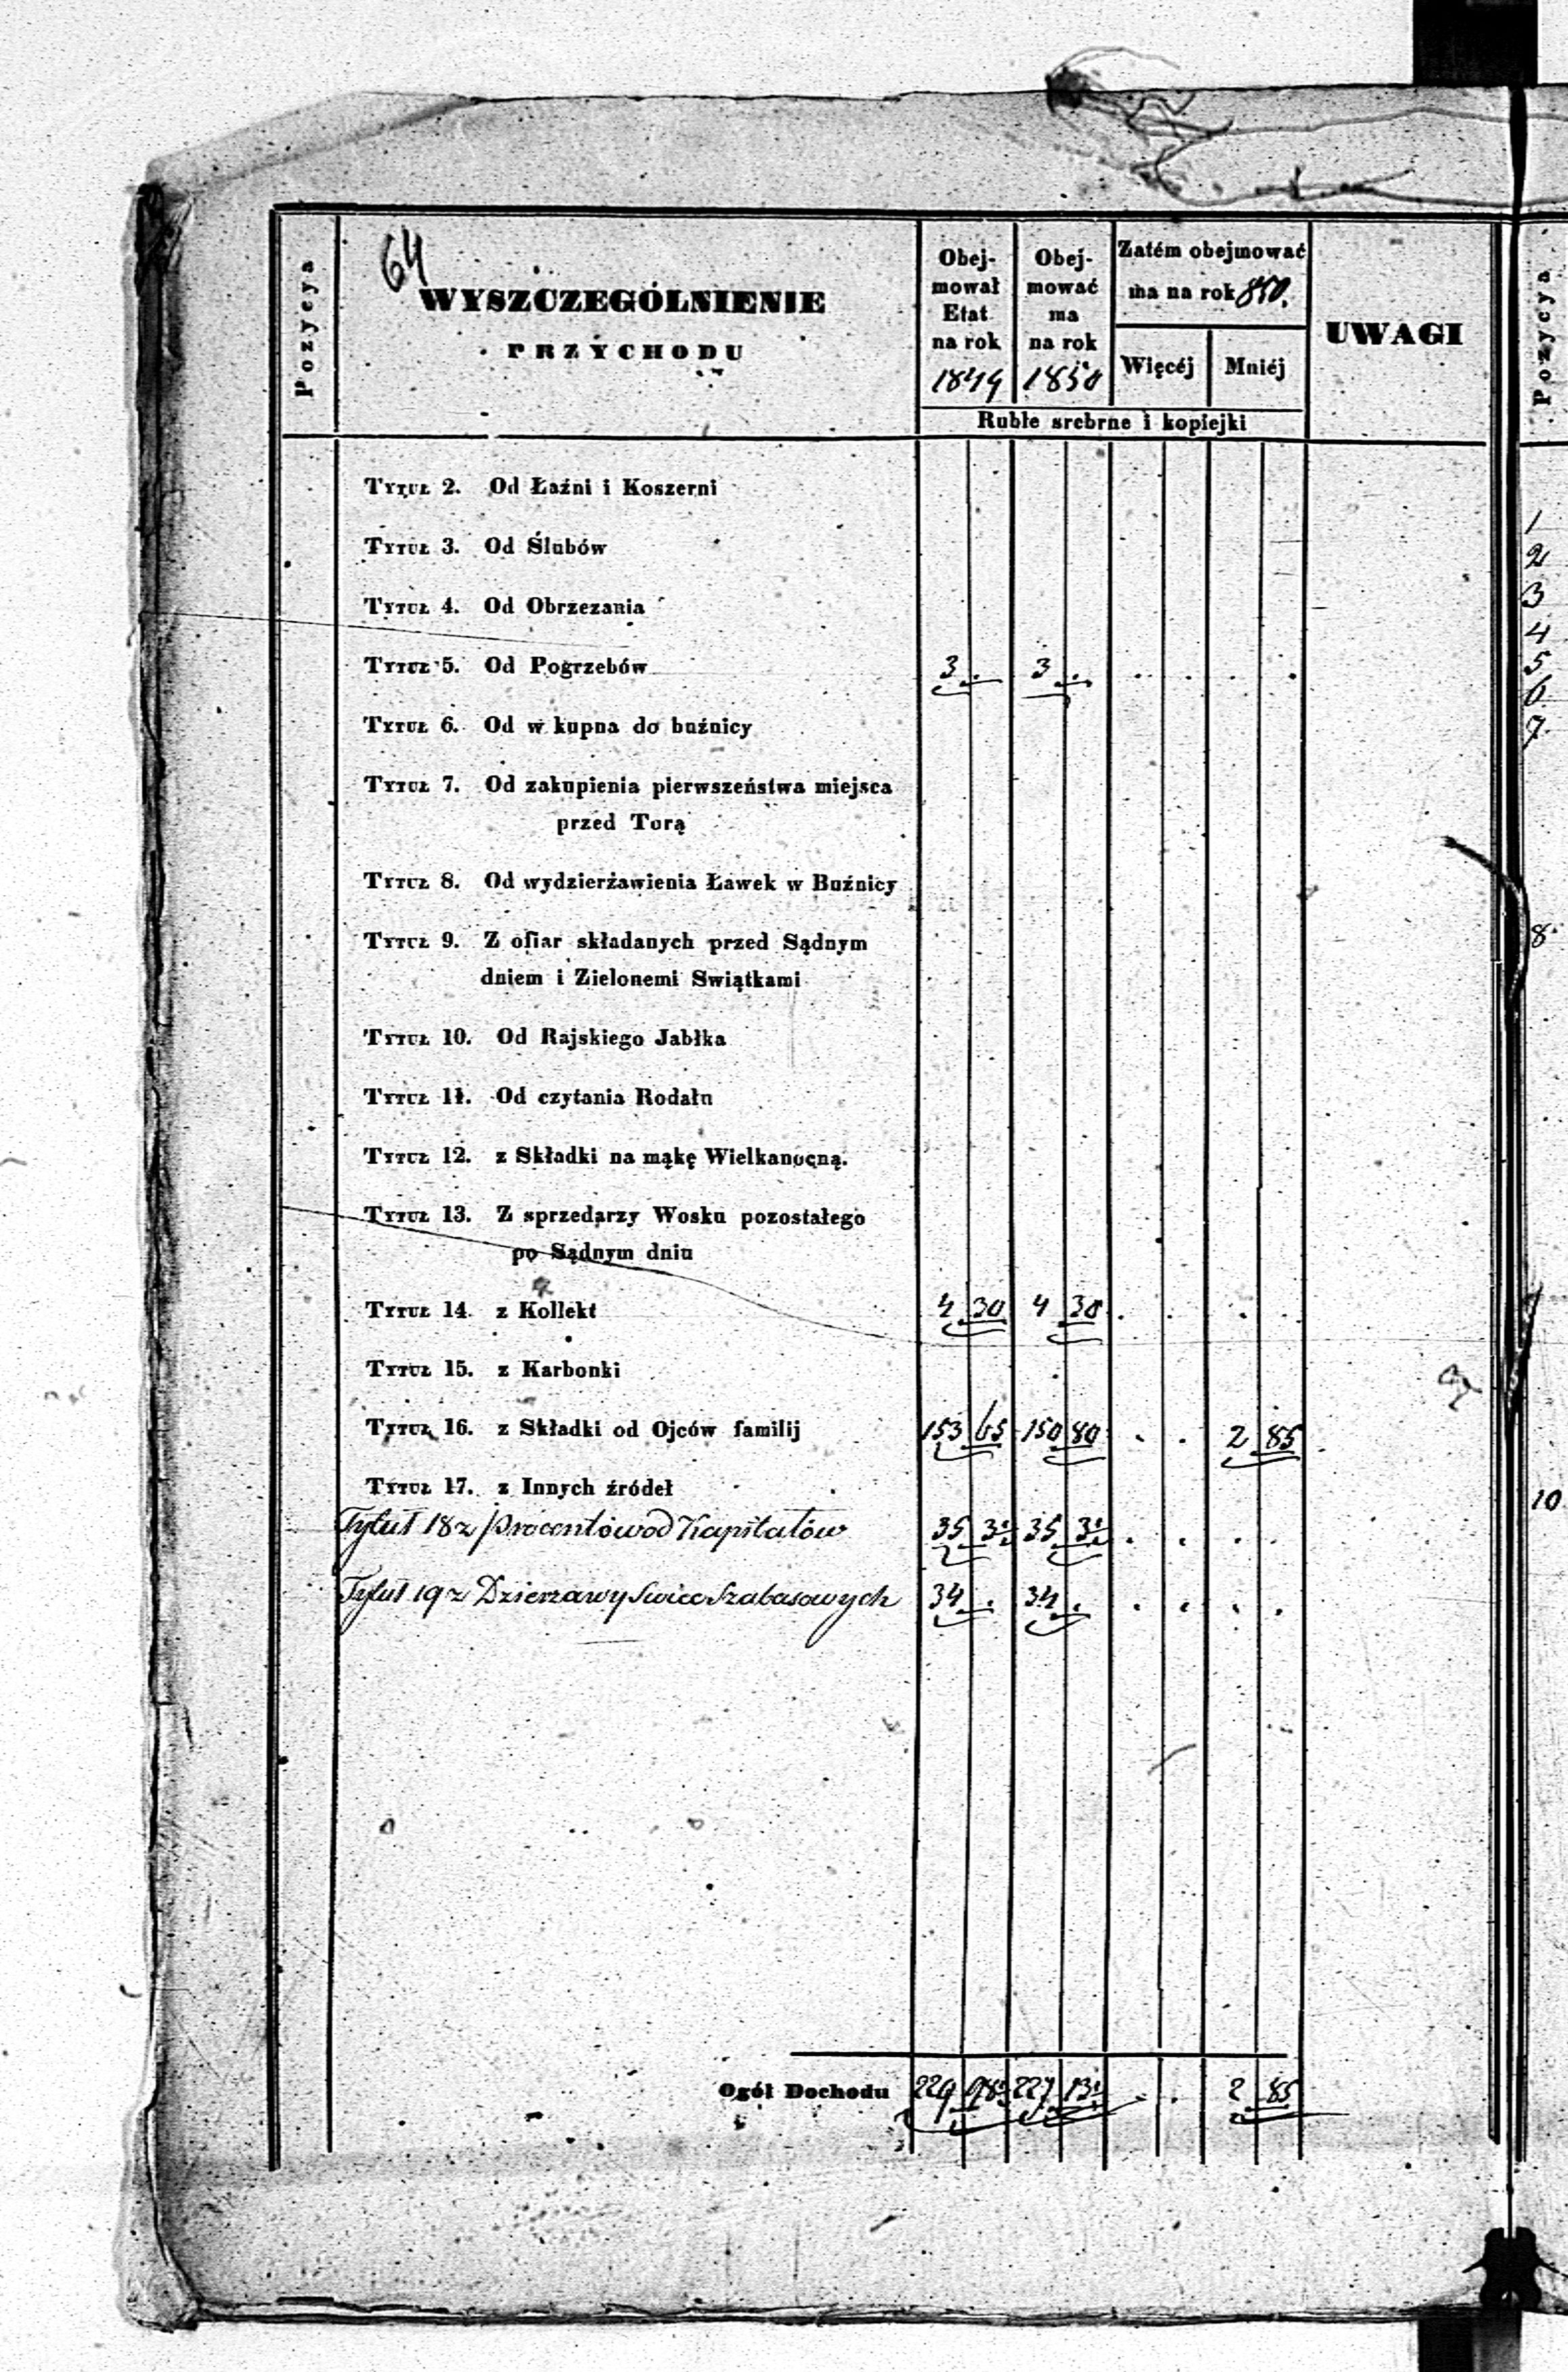 64
Pozycya
WYSZCZEGÓLNIENIE
PRZYCHODU
Obej-
mował
Etat
na rok
1849
Obej-
mować
ma
na rok
1850
Zatém obejmować
ma na rok 850.
Więcéj
Mniéj
Ruble srebrne i kopiejki
UWAGI
Tytuł 2. Od Łaźni i Koszerni
Tytuł 3. Od Ślubów
Tytuł 4. Od Obrzezania
Tytuł 5. Od Pogrzebów 3 . 3 . . . . .
Tytuł 6. Od w kupna do buźnicy
Tytuł 7. Od zakupienia pierwszeństwa miejsca
przed Torą
Tytuł 8. Od wydzierżawienia Ławek w Buźnicy
Tytuł 9. Z ofiar składanych przed Sądnym
dniem i Zielonemi Swiątkami
Tytuł 10. Od Rajskiego Jabłka
Tytuł 11. Od czytania Rodału
Tytuł 12. z Składki na mąkę Wielkanocną.
Tytuł 13. Z sprzedarzy Wosku pozostałego
po Sądnym dniu
Tytuł 14. z Kollekt 4 30 4 30 . . . .
Tytuł 15. z Karbonki
Tytuł 16. z Składki od Ojców familij 153 65 150 80 . . 2 85
Tytuł 17. z Innych źródeł
Tytuł 18 z Procentów od Kapitałów 35 35 . . . .
Tytuł 19 z Dzierzawy Swiec Szabasowych 34 . 34 . . . . .
Ogół Dochodu 229 227 . . 2 85
Pozycya
1
2
3
4
5
6
7
8
10